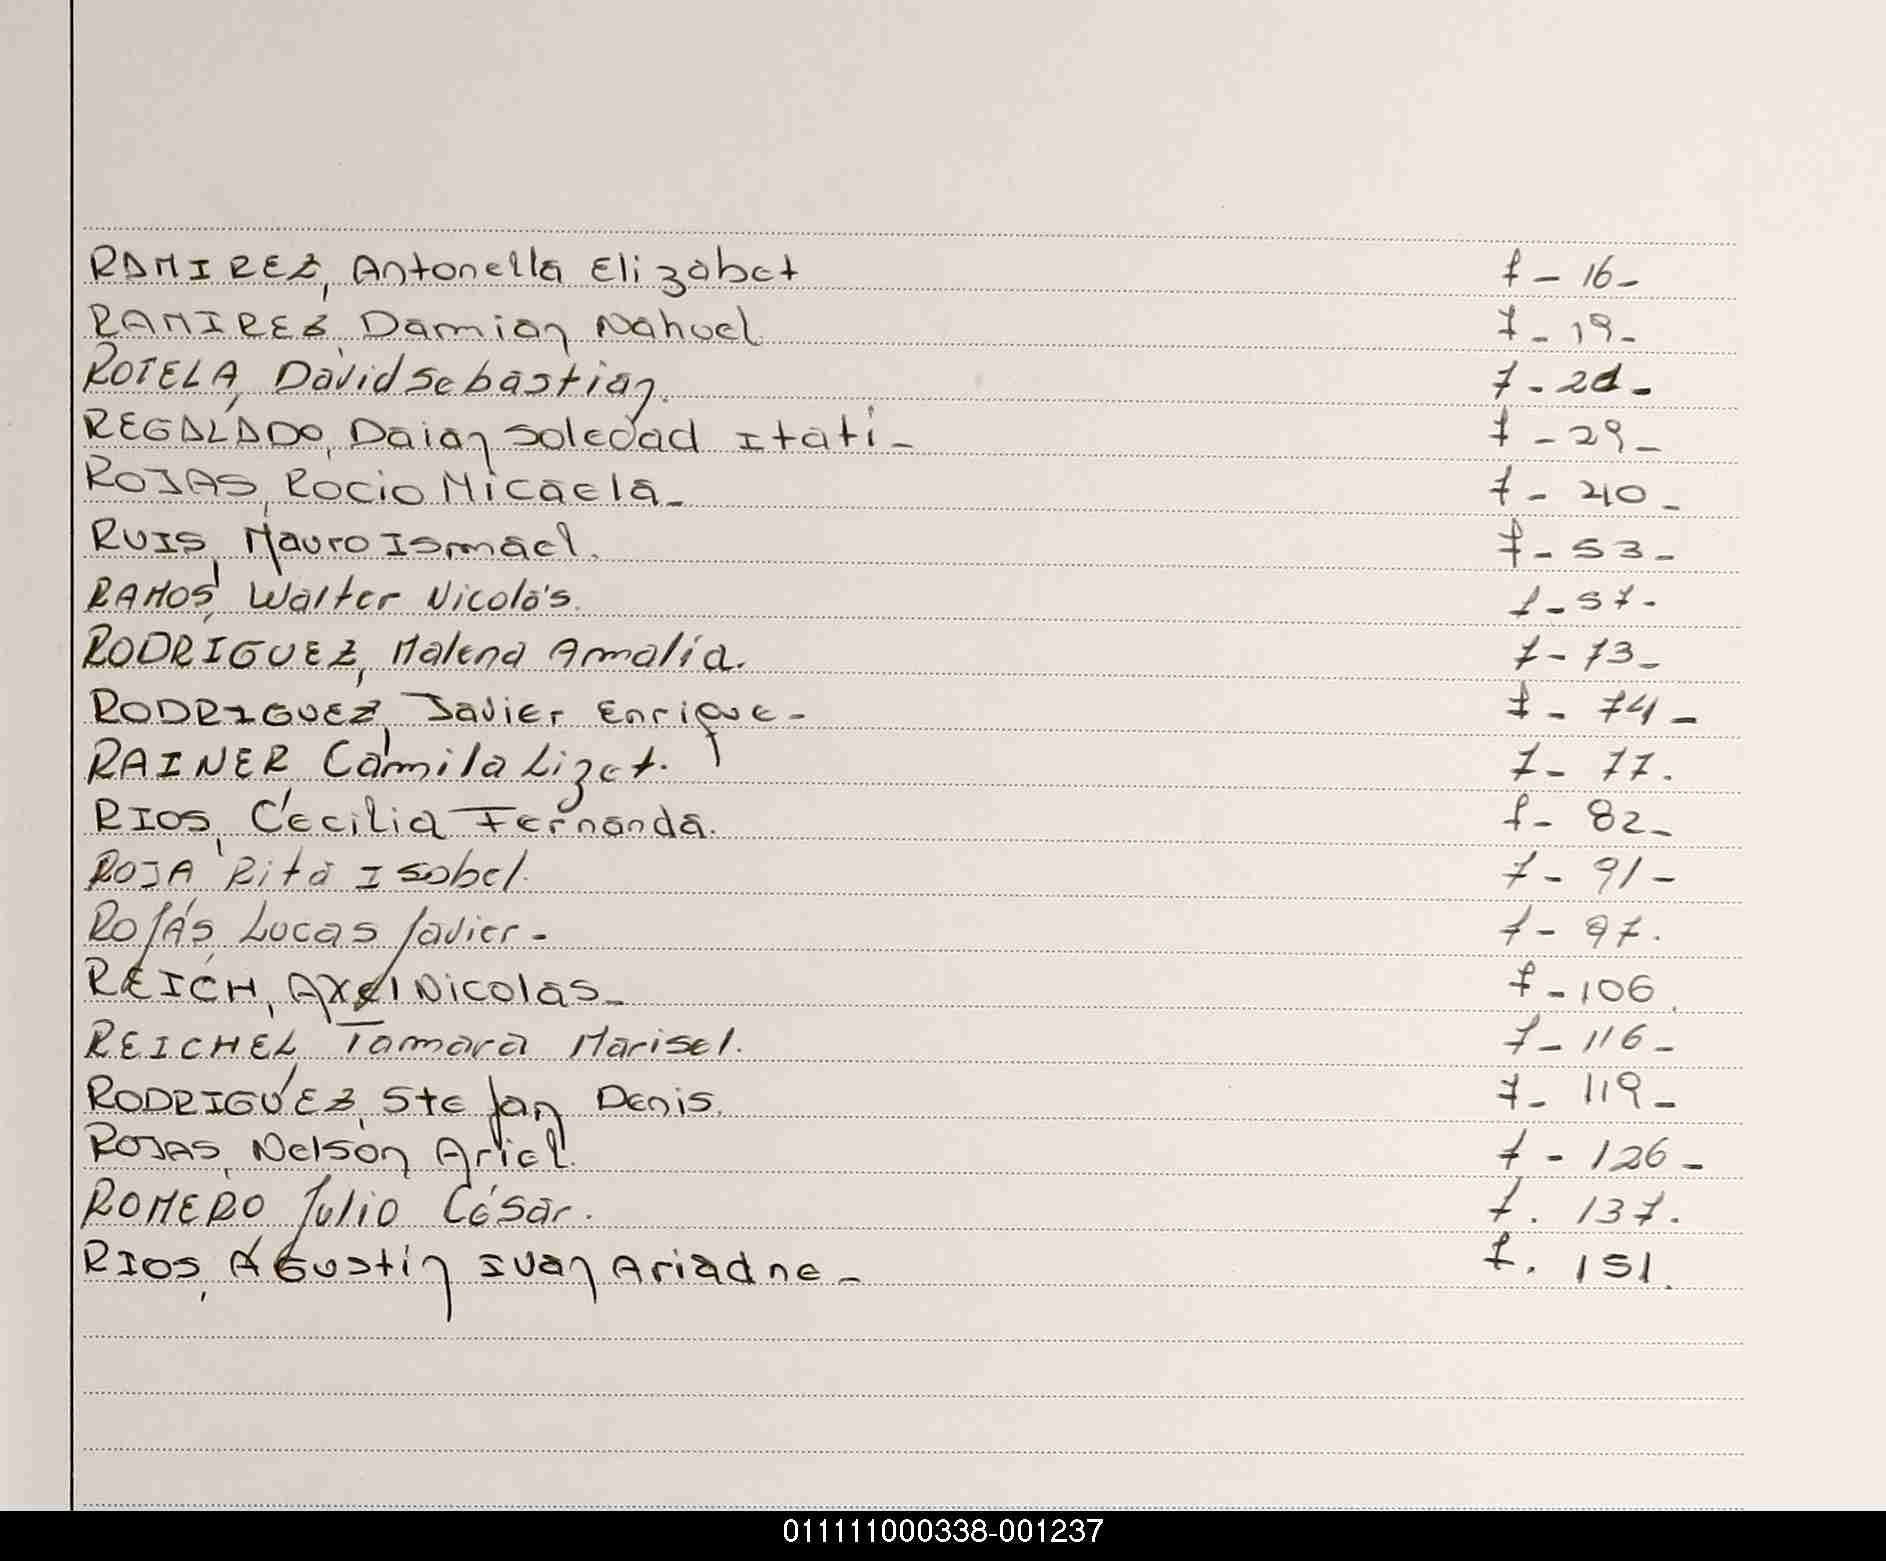 RAMIREZ, Antonella Elizabet f - 16 -
RAMIREZ, Damian Nahuel f - 19 -
ROTELA, David Sebastian. f - 21 -
REGALADO, Daian Soledad Itatí - f - 29 -
ROJAS, Rocio Micaela - f - 40 -
RUIS, Mauro Ismael. f - 53 -
RAMOS, Walter Nicolás. f - 57 -
RODRIGUEZ, Malena Amalia. f - 73 -
RODRIGUEZ, Javier Enrique - f - 74 -
RAINER Camila Lizet. f - 77.
RIOS, Cecilia Fernanda. f - 82 -
ROJA Rita Isabel. f - 91 -
ROJAS, Lucas Javier - f - 97.
REICH, Axel Nicolas - f - 106.
REICHEL Tamara Marisel. f - 116 -
RODRIGUEZ, Stefan Denis. f - 119 -
ROJAS, Nelson Ariel. f - 126 -
ROMERO Julio César. f. 137.
RIOS, Agustin Ivan Ariadne - f. 151.
011111000338-001237